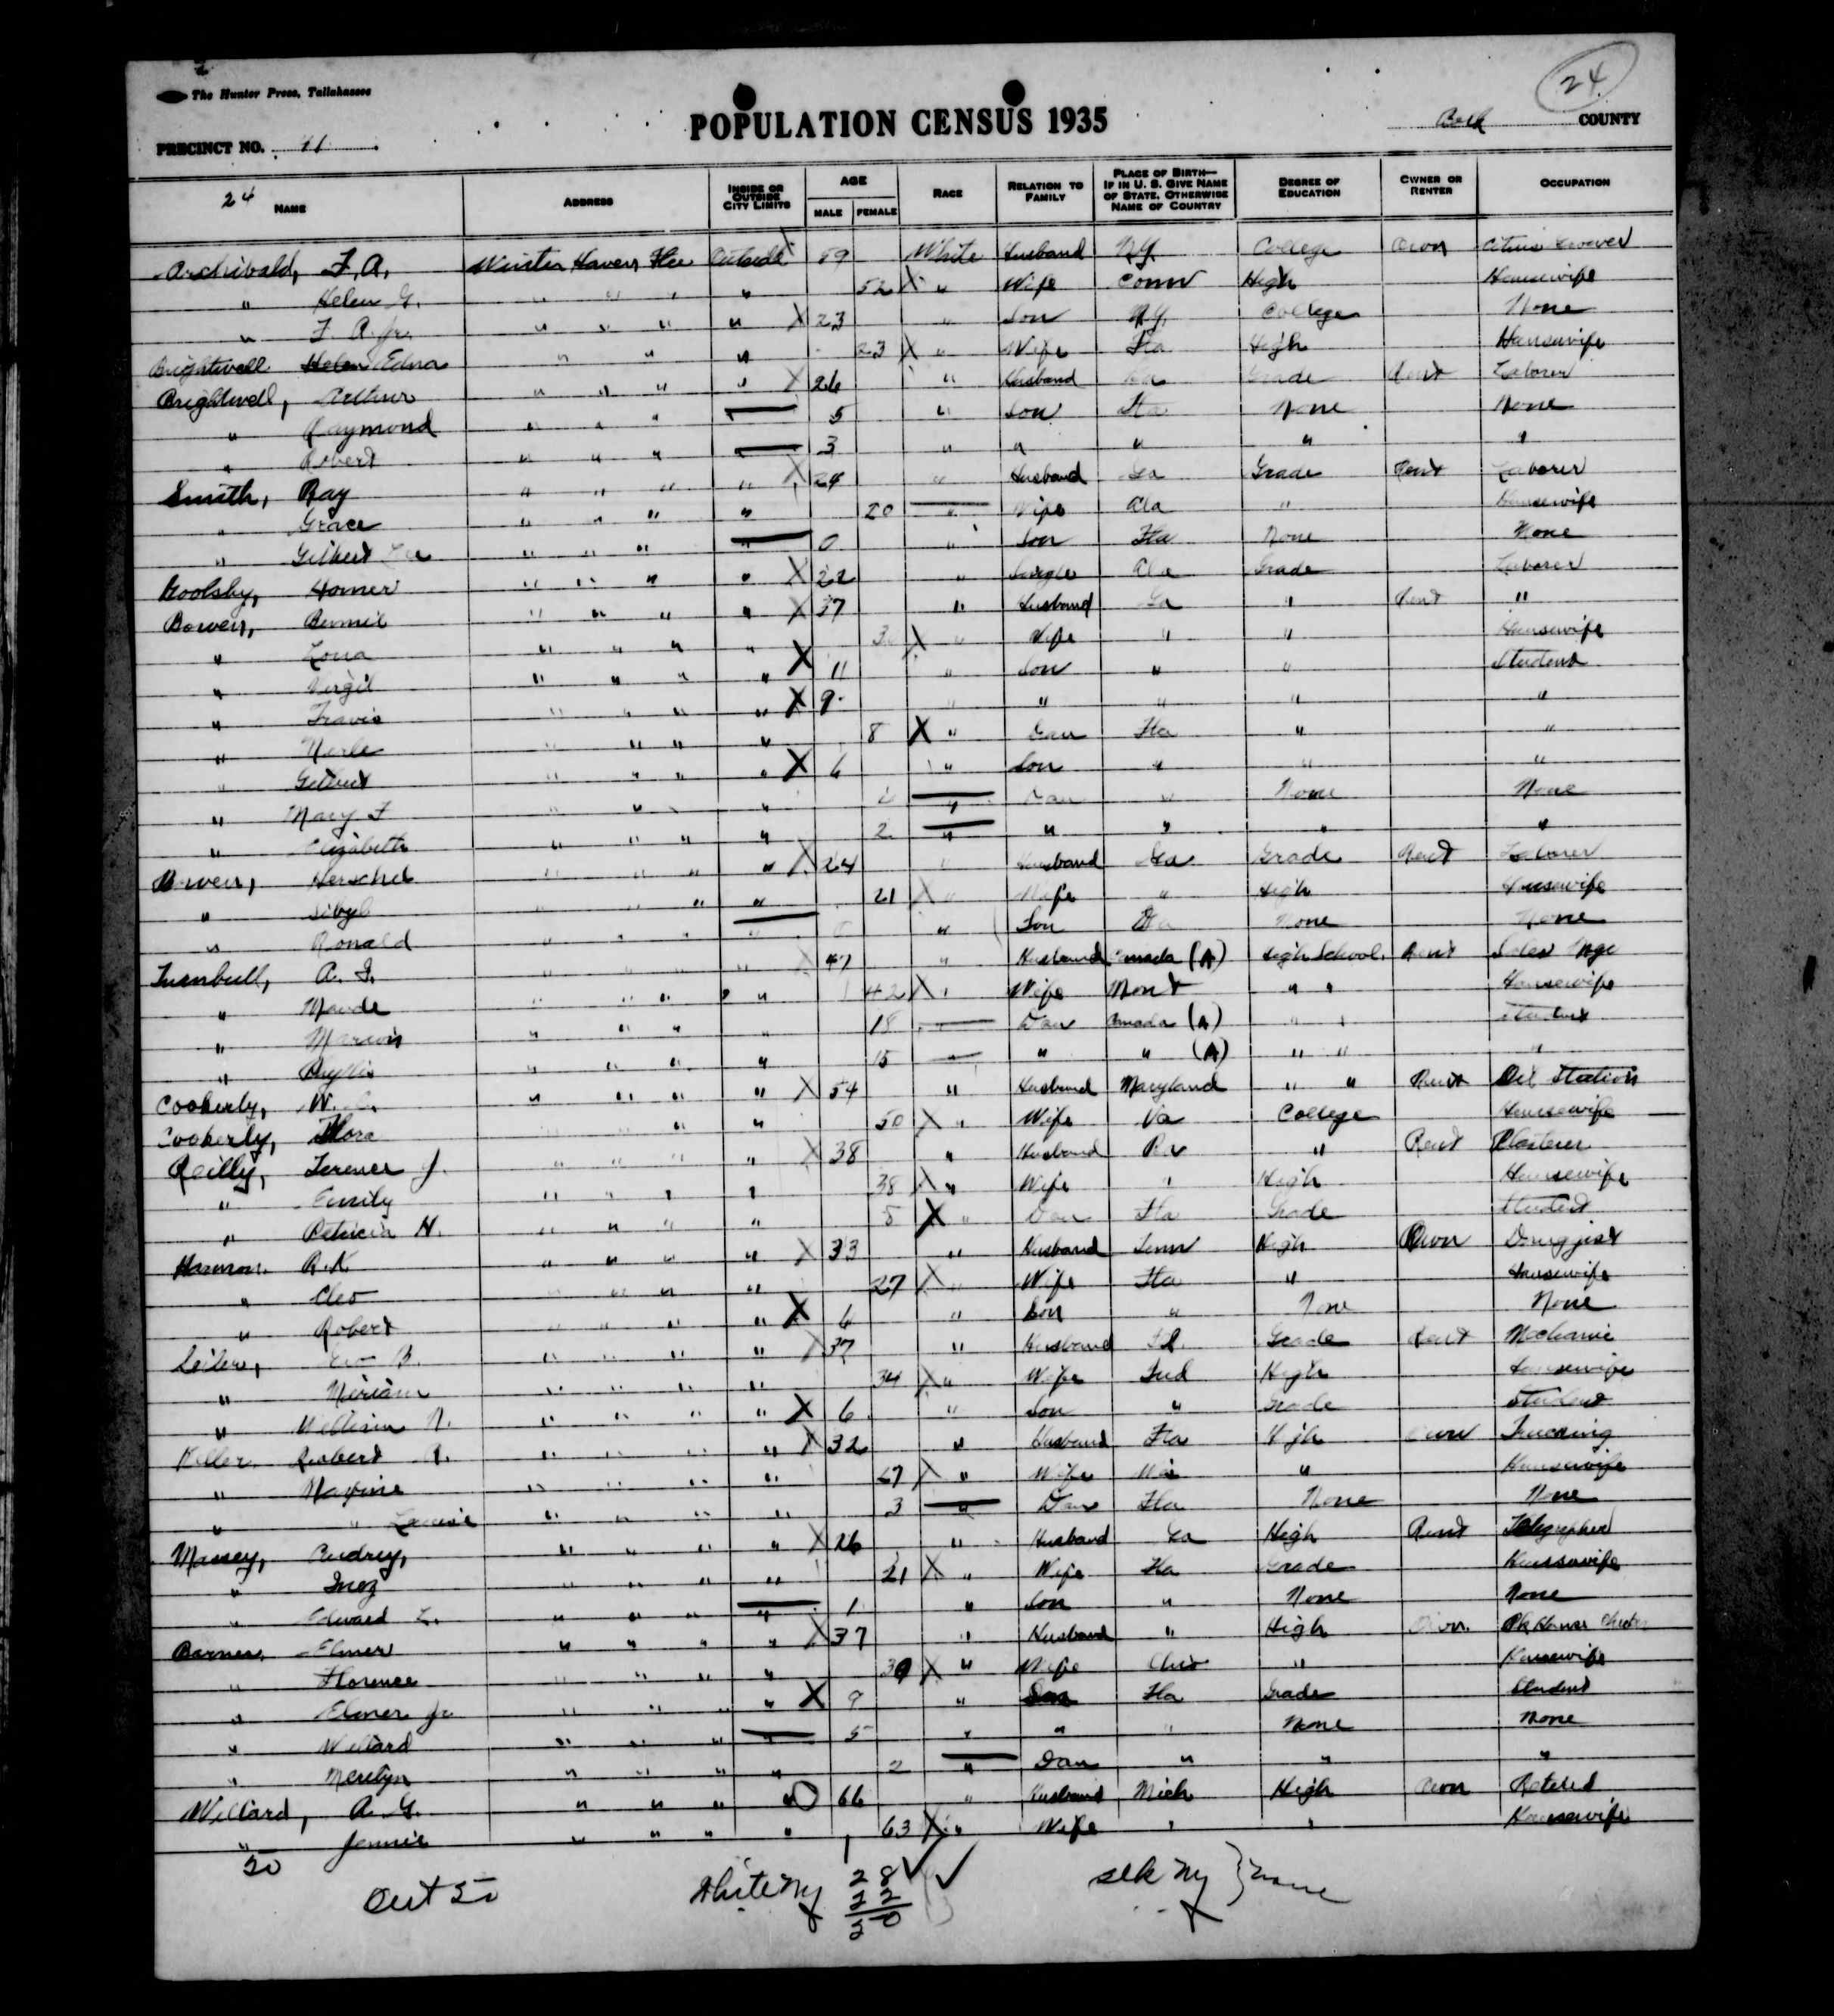 24
The Hunter Press, Tallahassee
POPULATION CENSUS 1935
PRECINCT NO. 41 COUNTY
24 NAME ADDRESS INSIDE OR OUTSIDE CITY LIMITS AGE MALE FEMALE RACE RELATION TO FAMILY PLACE OF BIRTH—IF IN U. S. GIVE NAME OF STATE. OTHERWISE NAME OF COUNTRY DEGREE OF EDUCATION OWNER OR RENTER OCCUPATION
Archibald, F. A. Winter Haven Fla Outside 59 White Husband N.Y. College Own Citrus Grower
" Helen G. " " " " 52 X " Wife Conn High Housewife
" F. A. Jr. " " " " X 23 " Son N.Y. College None
Brightwell Helen Edna " " " 23 X " Wife Fla High Housewife
Brightwell, Arthur " " " " X 26 " Husband Ga Grade Rent Laborer
" Raymond " " " 5 " Son Fla None None
" Robert " " " 3 " " " " "
Smith, Ray " " " " X 24 " Husband Ga Grade Rent Laborer
" Grace " " " " 20 " Wife Ala " Housewife
" Gilbert Lee " " " " 0 " Son Fla None None
Homer " " " " X 22 " Single Ala Grade Laborer
Bowen, " " " " X 37 " Husband Ga " Rent "
" " " " " X " Wife " " Housewife
" Virgil " " " " X 11 " Son " " Student
" Travis " " " " X 9 " " " " "
" Merle " " " " 8 X " Dau Fla " "
" Gilbert " " " " X 6 " Son " " "
" Mary F " " " " " Dau " None None
" Elizabeth " " " " 2 " " " " "
Bowen, Herschel " " " " X 24 " Husband Ga Grade Rent Laborer
" Sibyl " " " " 21 X " Wife " High Housewife
" Ronald " " " " " Son None None
Turnbull, A. " " " " X 47 " Husband Canada (A) High School Rent Sales Mgr
" Maude " " " " 42 X " Wife Mont " " Housewife
" " " " " 18 Dau Canada (A) " " Student
" Phyllis " " " " 15 " " (A) " " "
Cookerly, W. " " " " X 54 " Husband Maryland " " Rent Oil Station
Cookerly, Flora " " " 50 X " Wife Va College Housewife
Reilly, Terence J. " " " " X 38 " Husband " Rent Plasterer
" Emily " " " " 38 X " Wife " High Housewife
" Patricia H. " " " " X " Dau Fla Grade Student
Harmon R. K. " " " " X 33 " Husband Tenn High Own Druggist
" Cleo " " " " 27 X " Wife Fla " Housewife
" Robert " " " " X 6 " Son " None None
Geo B. " " " " X 37 " Husband Grade Rent Mechanic
" Miriam " " " " 34 X " Wife Ind High Housewife
" William " " " " X 6 " Son " Grade Student
Robert " " " " X 32 " Husband Fla High Own Trucking
" Maxine " " " " 27 X " Wife " Housewife
" " Louise " " " " 3 " Dau Fla None None
Massey, Audrey, " " " " X 26 " Husband Ga High Rent Telegrapher
" Inez " " " " 21 X " Wife Fla Grade Housewife
" Edward L. " " " " 1 " Son " None None
Barnes, Elmer " " " " X 37 " Husband " High Own
" Florence " " " " X " Wife Ohio " Housewife
" Elmer Jr " " " " X 9 " Son Fla Grade Student
" Willard " " " " 5 " " " None None
" Merilyn " " " " 2 " Dau " " "
Willard, A. G. " " " " 66 " Husband Mich High Own Retired
" Jennie " " " " 63 X " Wife " " Housewife
50
Out 50
28
22
50